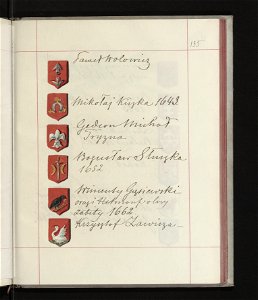 135
Paweł Wołowicz
Mikołaj Kiszka 1642
Gedeon Michał
Tryzna
Bogusław Słuszka
1652
Wincenty Gąsiewski
oraz i Hetman polny
zabity 1662
Krzysztof Zawisza